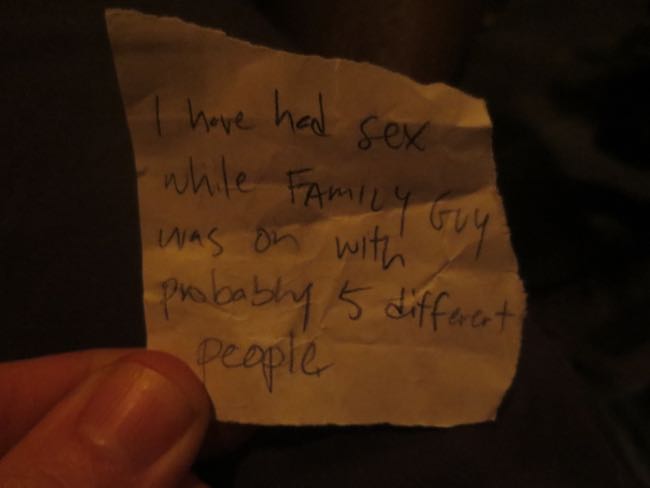 I have had sex
while FAMILY GUY
was on with
probably 5 different
people